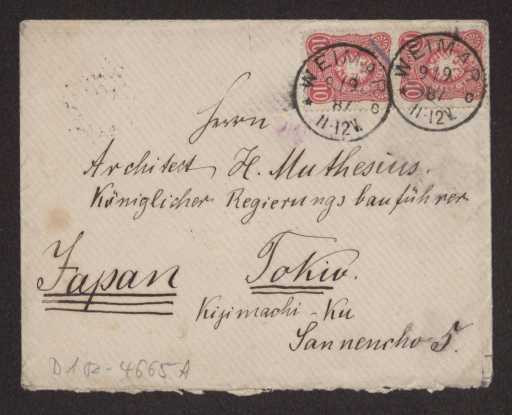 WEIMAR
9/9
87
11-12V.
WEIMAR
9/9
87
11-12V.
10
10
Herrn
Architect H. Muthesius.
Königlicher Regierungsbauführer
Japan Tokio.
Kijimachi - Ku
Sannencho 5.